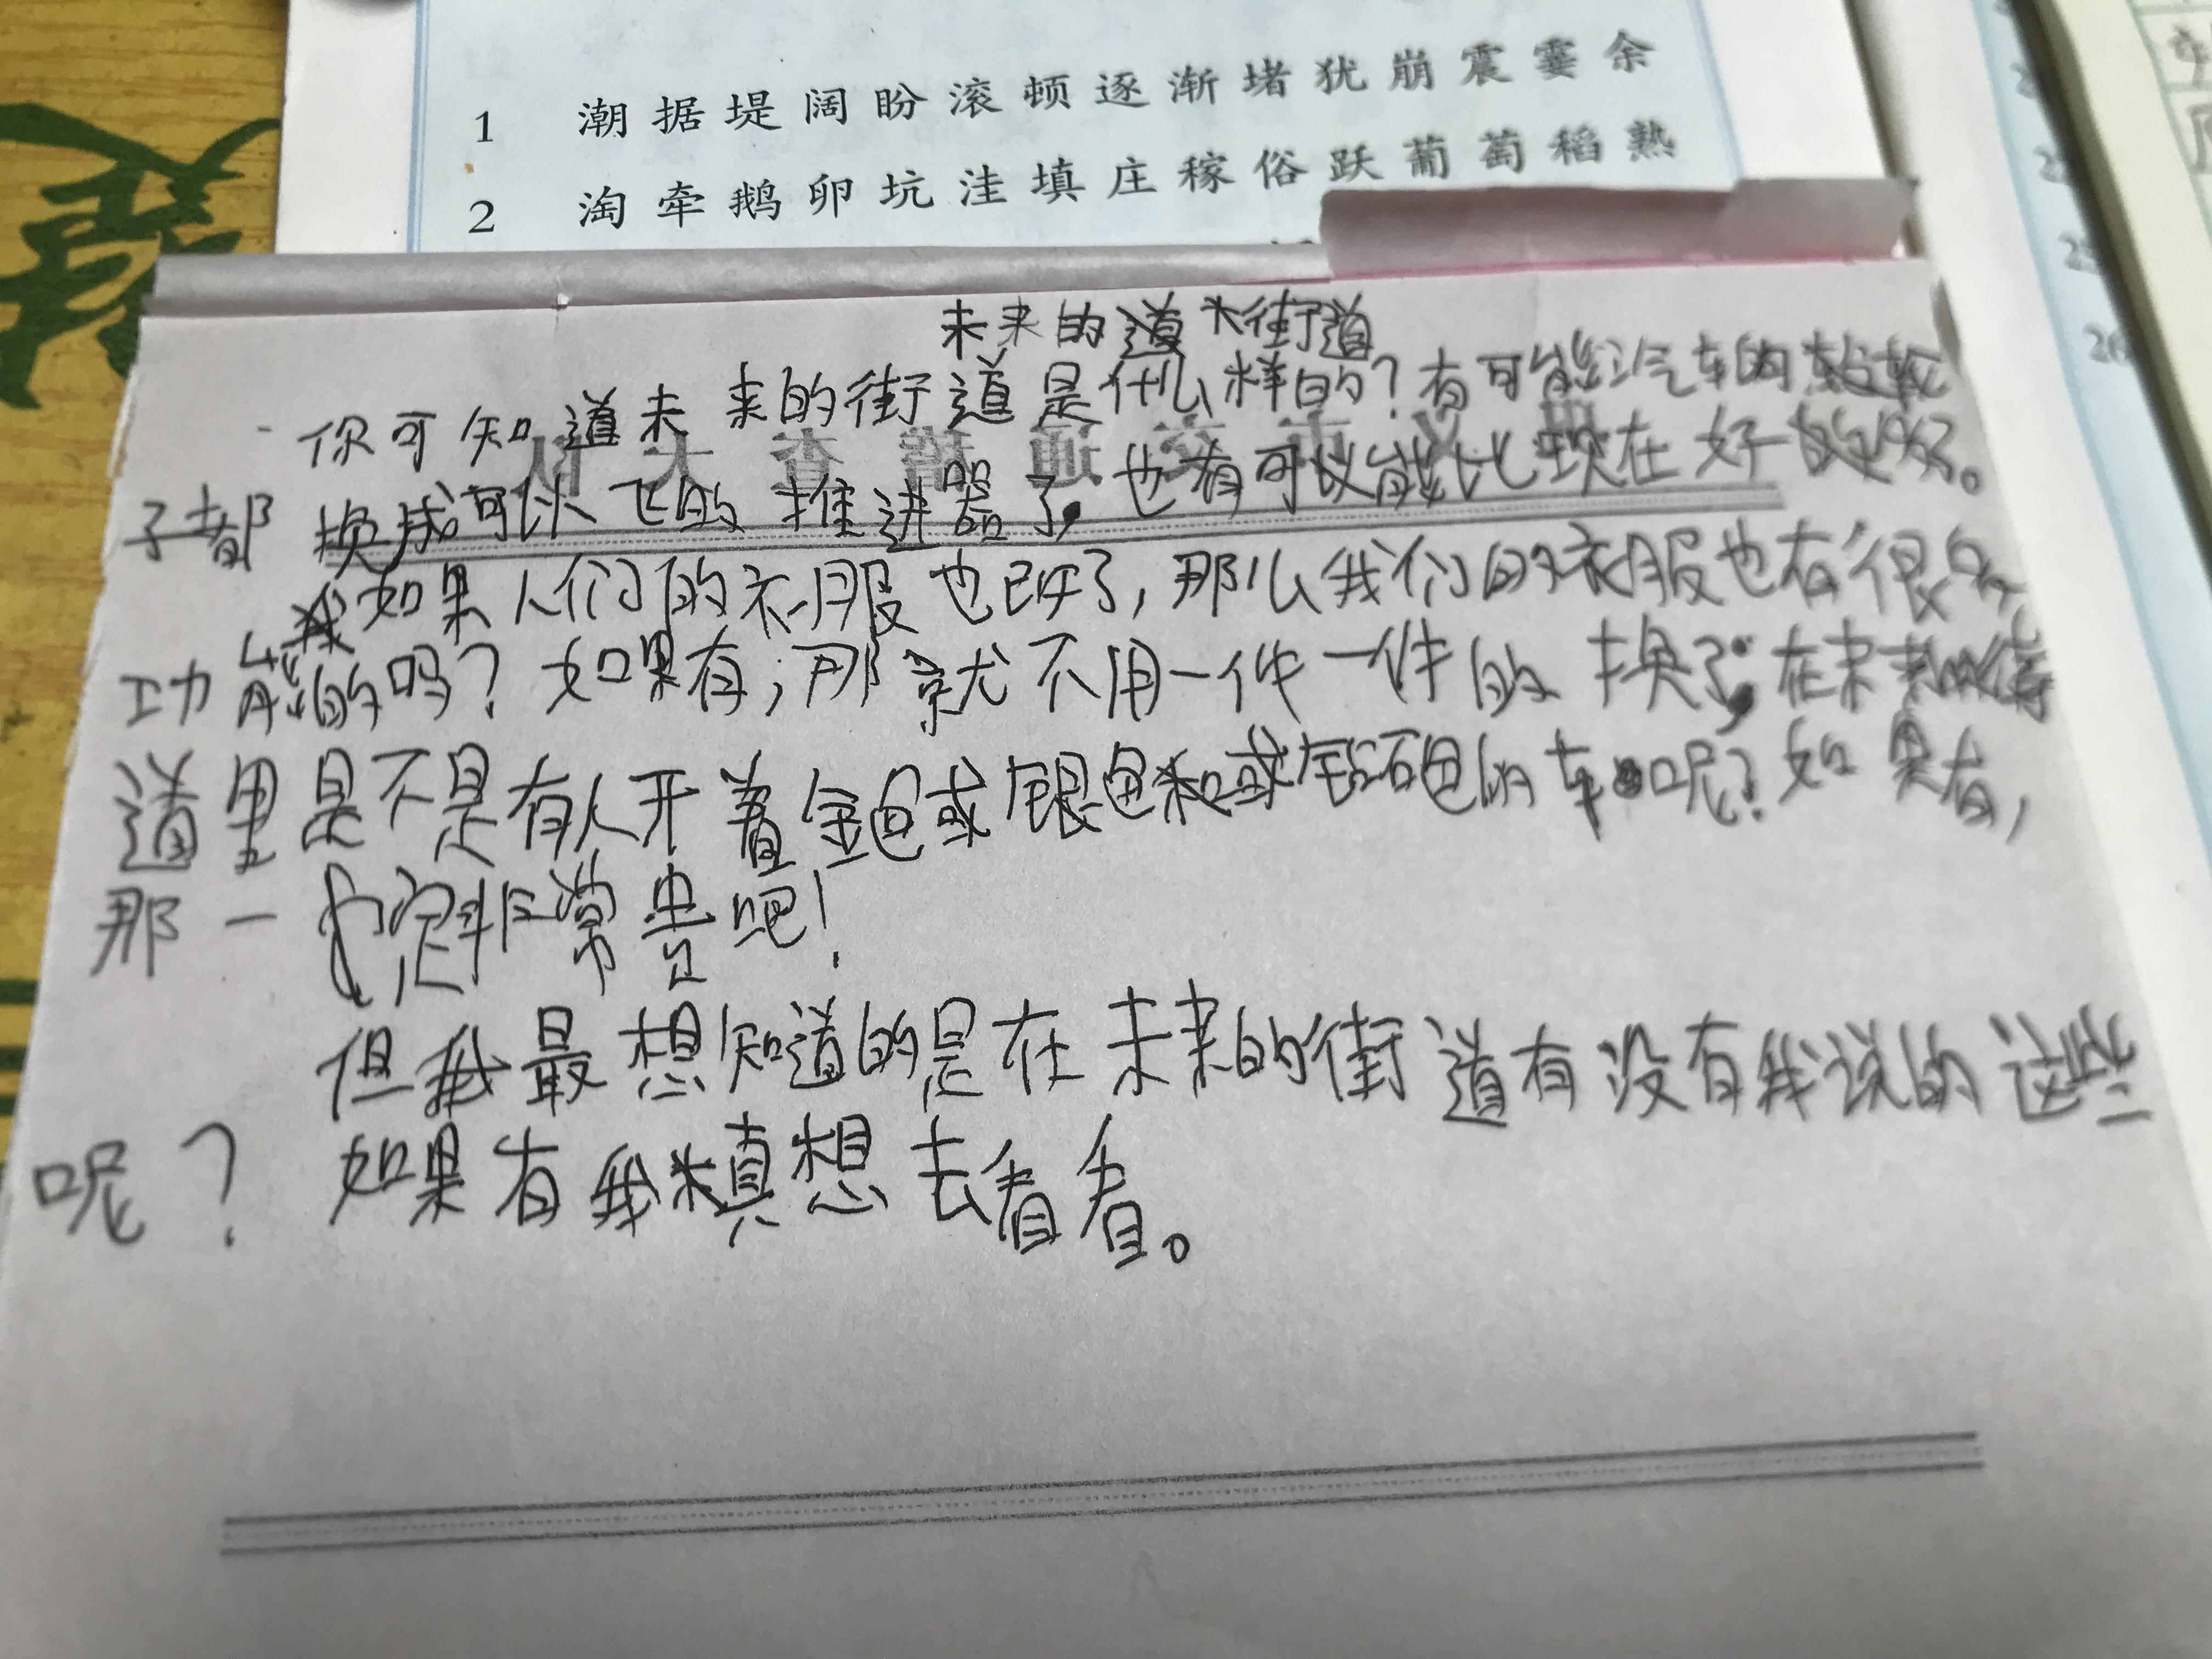 1 潮据堤阔盼滚顿逐渐堵犹崩震霎余
2 淘牵鹅卵坑洼填庄稼俗跃葡萄稻熟
未来的大街道
你可知道未来的街道是什么样的?有可能汽车的轮
子都换成可以飞的推进器了,也有可能比现在好的多。
如果人们的衣服也改了,那么我们的衣服也有很多
功能的吗?如果有,那就不用一件一件的换了,在未来的街
道里是不是有人开着金色或银色和或钻石色的车呢?如果有,
那一定非常贵吧!
但我最想知道的是在未来的街道有没有我说的这些
呢?如果有我真想去看看。